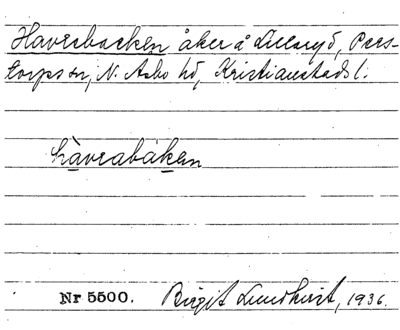 Haverbacken åker å Lillaryd, Pers-
torps sn, N. Åsbo hd, Kristianstads l.
hàvrabákan
Nr 5500. Birgit Lundkvist, 1936.